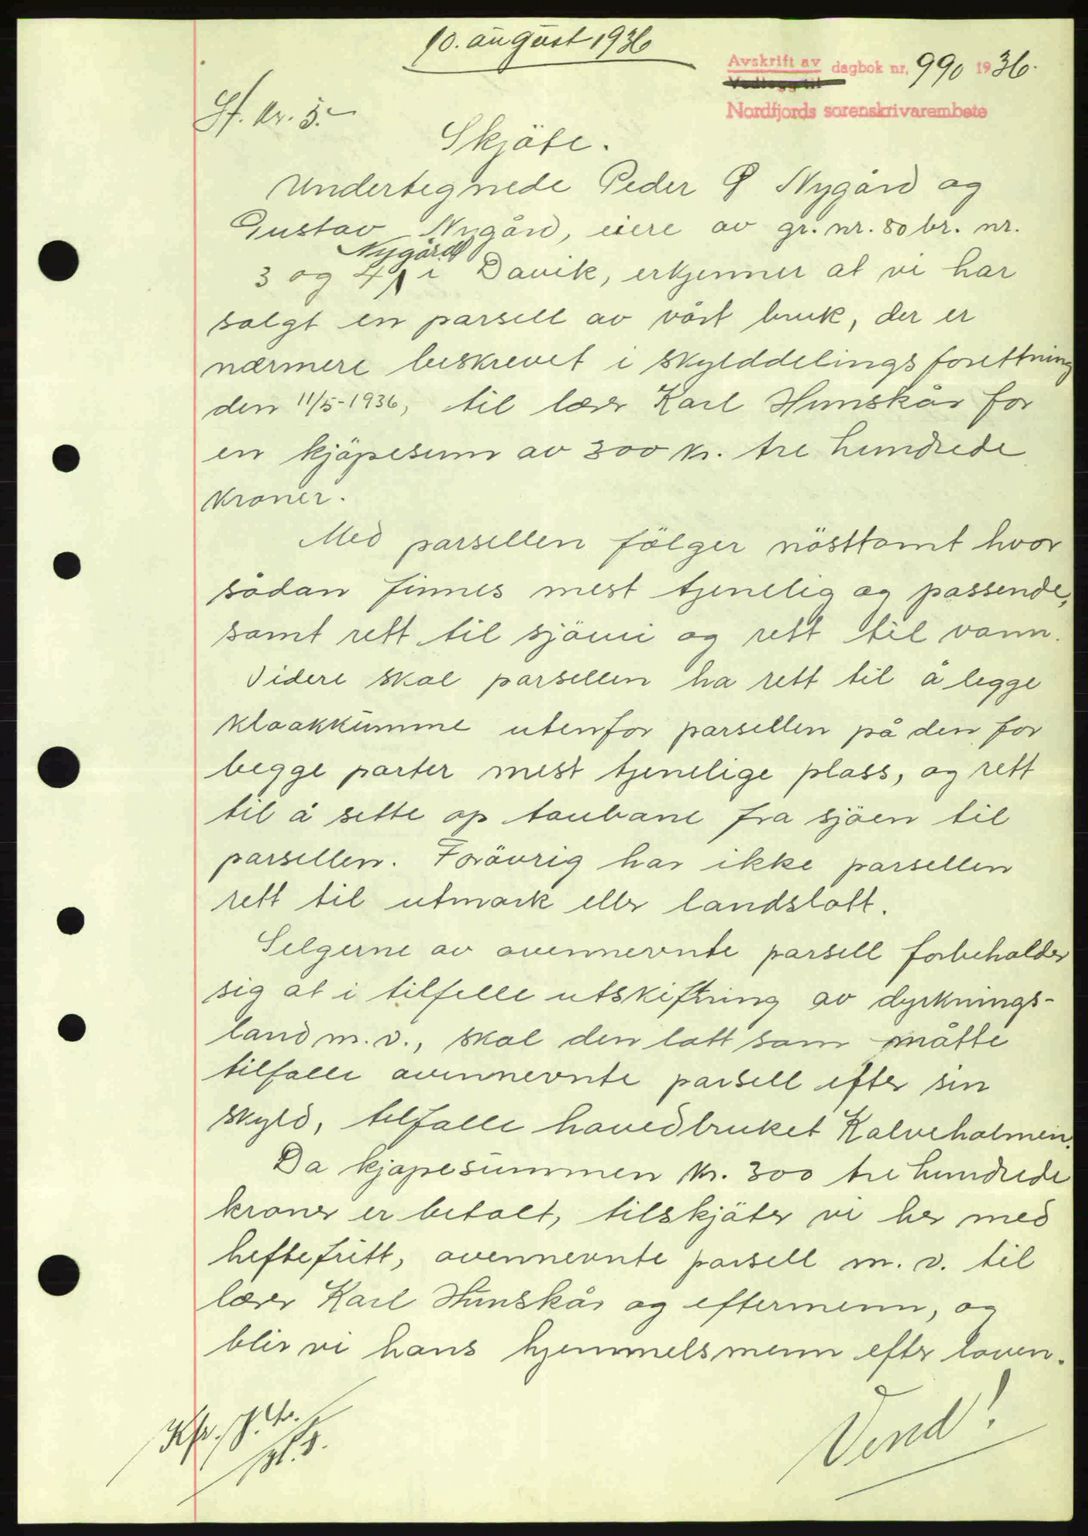 10. august 1936
Avskrift av dagbok nr. 990 1936.
Vedlegg til
Nordfjords sorenskrivarembete
St. kr. 5.-
Skjöte.
Undertegnede Peder P Nygård og
Gustav Nygård, eiere av gr. nr. 80 br. nr.
Nygård
3 og 4 i Davik, erkjenner at vi har
solgt en parsell av vårt bruk, der er
nærmere beskrevet i skylddelingsforettning
den 11/5-1936, til lærer Karl Hunskår for
en kjöpesum av 300 kr. tre hundrede
kroner.
Med parsellen fölger nösttomt hvor
sådan finnes mest tjenelig og passende,
samt rett til sjöen og rett til vann.
Videre skal parsellen ha rett til å legge
kloakkumme utenfor parsellen på den for
begge parter mest tjenelige plass, og rett
til å sette op taubane fra sjöen til
parsellen. Forövrig har ikke parsellen
rett til utmark eller landslott.
Selgerne av ovennevnte parsell forbeholder
sig at i tilfelle utskiftning av dyrknings-
land m. v., skal den lott som måtte
tilfalle ovennevnte parsell efter sin
skyld, tilfalle hovedbruket Kalveholmen.
Da kjöpesummen kr. 300 tre hundrede
kroner er betalt, tilskjöter vi her med
heftefritt, ovennevnte parsell m. v. til
lærer Karl Hunskår og eftermenn, og
blir vi hans hjemmelsmenn efter loven.
Vend!